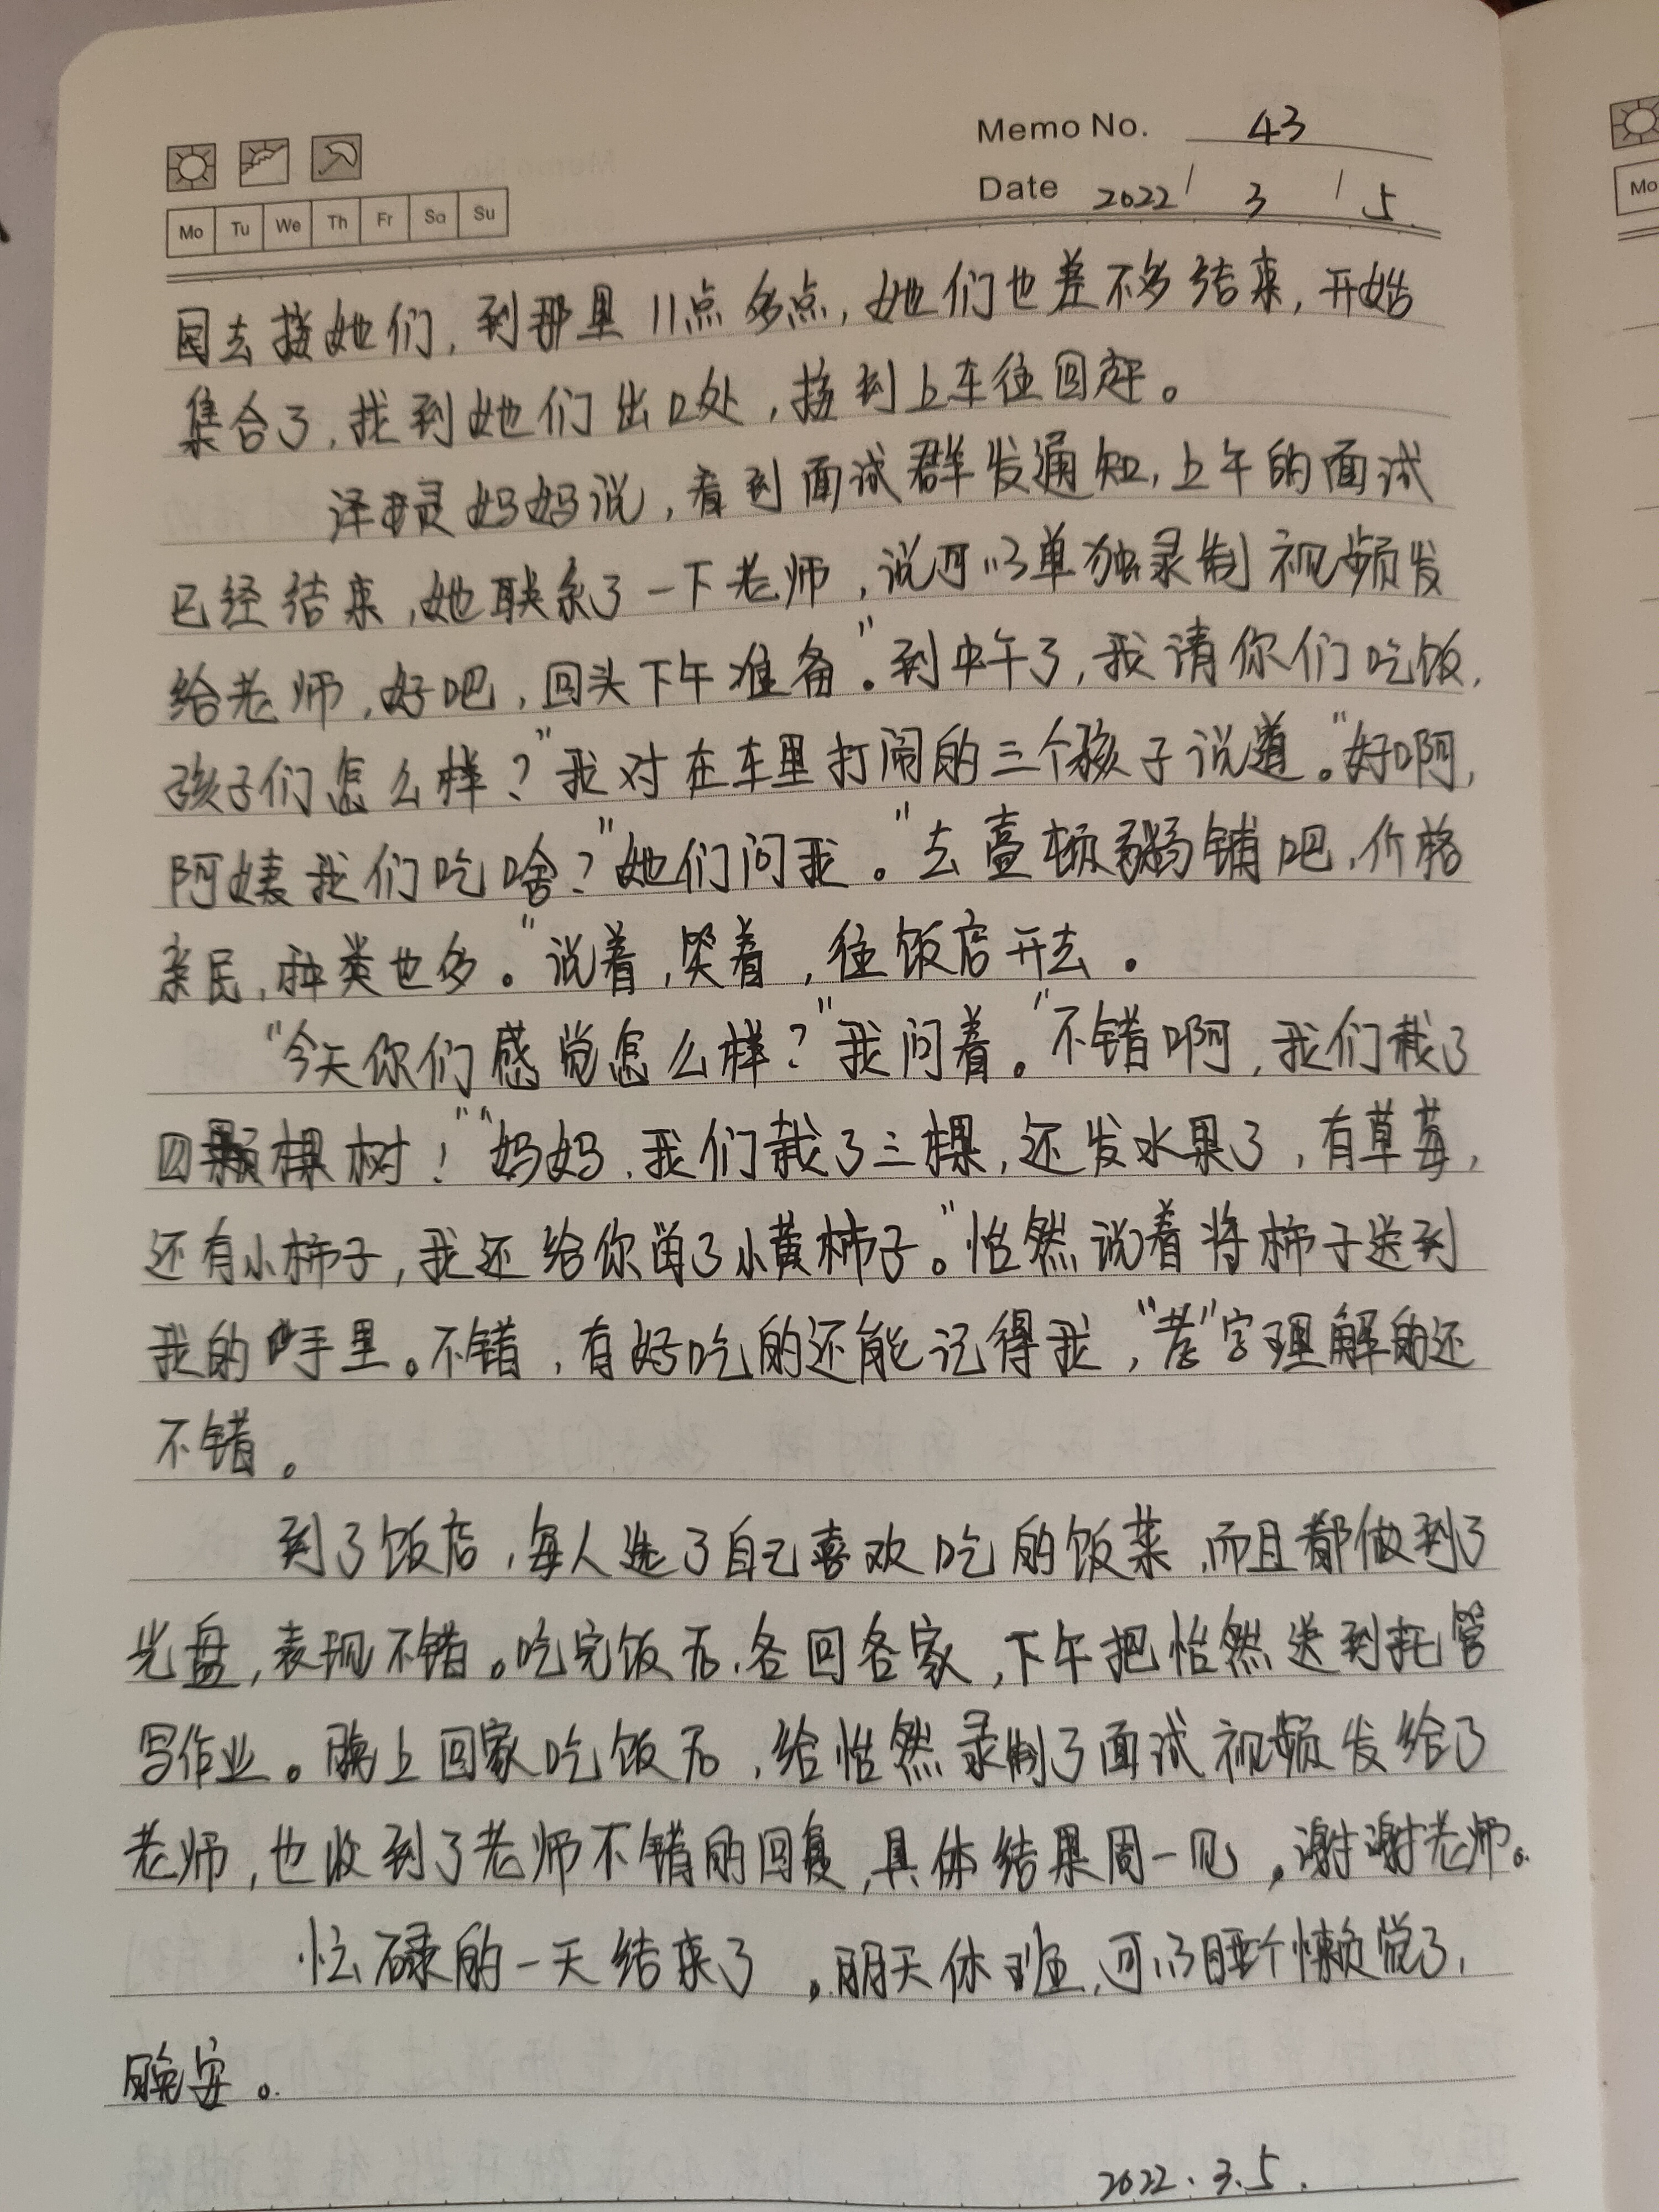 Memo No. 43
Mo Tu We Th Fr Sa Su
Date 2022 / 3 / 5
园去接她们,到那里11点多点,她们也差不多结束,开始
集合了,找到她们出口处,接到上车往回赶。
泽灵妈妈说,看到面试群发通知,上午的面试
已经结束,她联系了一下老师,说可以单独录制视频发
给老师,好吧,回头下午准备。"到中午了,我请你们吃饭,
孩子们怎么样?"我对在车里打闹的三个孩子说道。"好啊,
阿姨我们吃啥?"她们问我。"去壹顿粥铺吧,价格
亲民,种类也多。"说着,笑着,往饭店开去。
"今天你们感觉怎么样?"我问着。"不错啊,我们栽了
四棵树!""妈妈,我们栽了三棵,还发水果了,有草莓,
还有小柿子,我还给你留了小黄柿子。"怡然说着将柿子送到
我的手里。不错,有好吃的还能记得我,"孝"字理解的还
不错。
到了饭店,每人选了自己喜欢吃的饭菜,而且都做到了
光盘,表现不错。吃完饭后,各回各家,下午把怡然送到托管
写作业。晚上回家吃饭后,给怡然录制了面试视频发给了
老师,也收到了老师不错的回复,具体结果周一见,谢谢老师。
忙碌的一天结束了,明天休班,可以睡个懒觉了,
晚安。
2022.3.5.
Mo